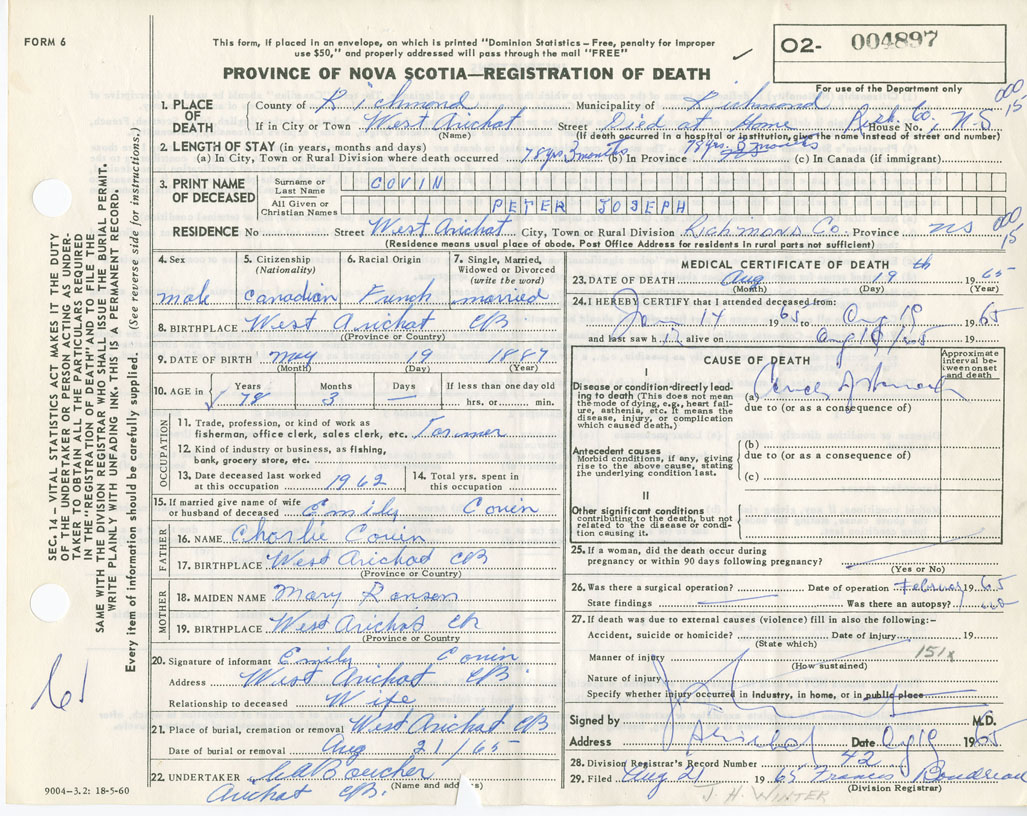 FORM 6
This form, if placed in an envelope, on which is printed "Dominion Statistics – Free, penalty for improper
use $50," and properly addressed will pass through the mail "FREE"
O2- 004897
PROVINCE OF NOVA SCOTIA—REGISTRATION OF DEATH
For use of the Department only
000
15
1. PLACE OF DEATH
County of Richmond Municipality of Richmond
If in City or Town West Arichat Street Died at Home Rich. Co., House No. N.S
(Name) (If death occurred in a hospital or institution, give the name instead of street and number)
2. LENGTH OF STAY (in years, months and days)
(a) In City, Town or Rural Division where death occurred 78 yrs. 3 months (b) In Province 78 yrs. 3 months (c) In Canada (if immigrant)
3. PRINT NAME OF DECEASED
Surname or Last Name COVIN
All Given or Christian Names PETER JOSEPH
RESIDENCE No Street West Arichat City, Town or Rural Division Richmond Co. Province NS
000
15
(Residence means usual place of abode. Post Office Address for residents in rural parts not sufficient)
4. Sex
male
5. Citizenship
(Nationality)
Canadian
6. Racial Origin
French
7. Single, Married,
Widowed or Divorced
(write the word)
married
8. BIRTHPLACE West Arichat CB
(Province or Country)
9. DATE OF BIRTH May 19 1887
(Month) (Day) (Year)
10. AGE in Years Months Days If less than one day old
78 3 — hrs. or min.
OCCUPATION
11. Trade, profession, or kind of work as
fisherman, office clerk, sales clerk, etc. Farmer
12. Kind of industry or business, as fishing,
bank, grocery store, etc.
13. Date deceased last worked
at this occupation 1962
14. Total yrs. spent in
this occupation
15. If married give name of wife
or husband of deceased Emily Covin
FATHER
16. NAME Charlie Covin
17. BIRTHPLACE West Arichat CB
(Province or Country)
MOTHER
18. MAIDEN NAME Mary
19. BIRTHPLACE West Arichat CB
(Province or Country
20. Signature of informant Emily Covin
Address West Arichat CB
Relationship to deceased Wife
21. Place of burial, cremation or removal West Arichat CB
Date of burial or removal Aug 21/65
22. UNDERTAKER Boucher
(Name and address)
Arichat CB.
MEDICAL CERTIFICATE OF DEATH
23. DATE OF DEATH Aug 19th 1965
(Month) (Day) (Year)
24. I HEREBY CERTIFY that I attended deceased from:
Jan 14 1965 to Aug 19 1965
and last saw h alive on Aug 18 1965
CAUSE OF DEATH
Approximate
interval be-
tween onset
and death
I
Disease or condition directly lead-
ing to death (This does not mean
the mode of dying, e.g., heart fail-
ure, asthenia, etc. It means the
disease, injury, or complication
which caused death.)
(a) Cancer of Stomach
due to (or as a consequence of)
Antecedent causes
Morbid conditions, if any, giving
rise to the above cause, stating
the underlying condition last.
(b)
due to (or as a consequence of)
(c)
II
Other significant conditions
contributing to the death, but not
related to the disease or condi-
tion causing it.
25. If a woman, did the death occur during
pregnancy or within 90 days following pregnancy?
(Yes or No)
26. Was there a surgical operation? Date of operation February 1965
State findings Was there an autopsy? no
27. If death was due to external causes (violence) fill in also the following:-
Accident, suicide or homicide? Date of injury 19
(State which)
151x
Manner of injury
(How sustained)
Nature of injury
Specify whether injury occurred in industry, in home, or in public place
Signed by M.D.
Address Arichat Date Aug 19 1965
28. Division Registrar's Record Number 42
29. Filed Aug 21 1965 Francis Boudreau
(Division Registrar)
J. H. WINTER
SEC. 14 – VITAL STATISTICS ACT MAKES IT THE DUTY
OF THE UNDERTAKER OR PERSON ACTING AS UNDER-
TAKER TO OBTAIN ALL THE PARTICULARS REQUIRED
IN THE "REGISTRATION OF DEATH" AND TO FILE THE
SAME WITH THE DIVISION REGISTRAR WHO SHALL ISSUE THE BURIAL PERMIT.
WRITE PLAINLY WITH UNFADING INK. THIS IS A PERMANENT RECORD.
Every item of information should be carefully supplied. (See reverse side for instructions.)
9004-3.2: 18-5-60